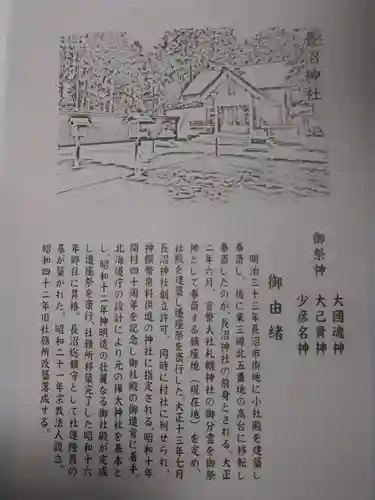 長沼神社
御祭神
大國魂神
大己貴神
少彦名神
御由緒
明治三十三年長沼市街地に小社殿を建築し
奉斎し、後に東三線北五番地の高台に移転し
奉斎したのが、長沼神社の前身とされる。大正
二年六月、官幣大社札幌神社の御分霊を御祭
神として奉斎する鎮座地（現在地）を定め、
社殿を建築し遷座祭を斎行した。大正十三年七月
長沼神社創立許可。同時に村社に列せられ、
神饌幣帛料供進の神社に指定される。昭和十年
開村四十周年を記念し御社殿の御造営に着手。
北海道庁の設計により元の樺太神社を基本と
し、昭和十二年神明造の壮麗なる御社殿が完成
し遷座祭を斎行。社務所移築完了した昭和十六
年郷社に昇格、長沼総鎮守として社運隆昌の
基が築かれた。昭和二十一年宗教法人設立。
昭和四十二年旧社務所改築落成する。